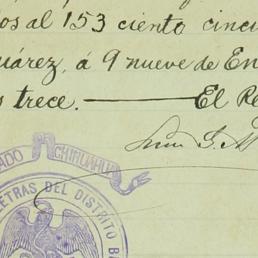 os al 153 ciento cincu
uárez, á 9 nueve de En
s trece. — El Re
ADO CHIHUAHUA
ETRAS DEL DISTRITO B